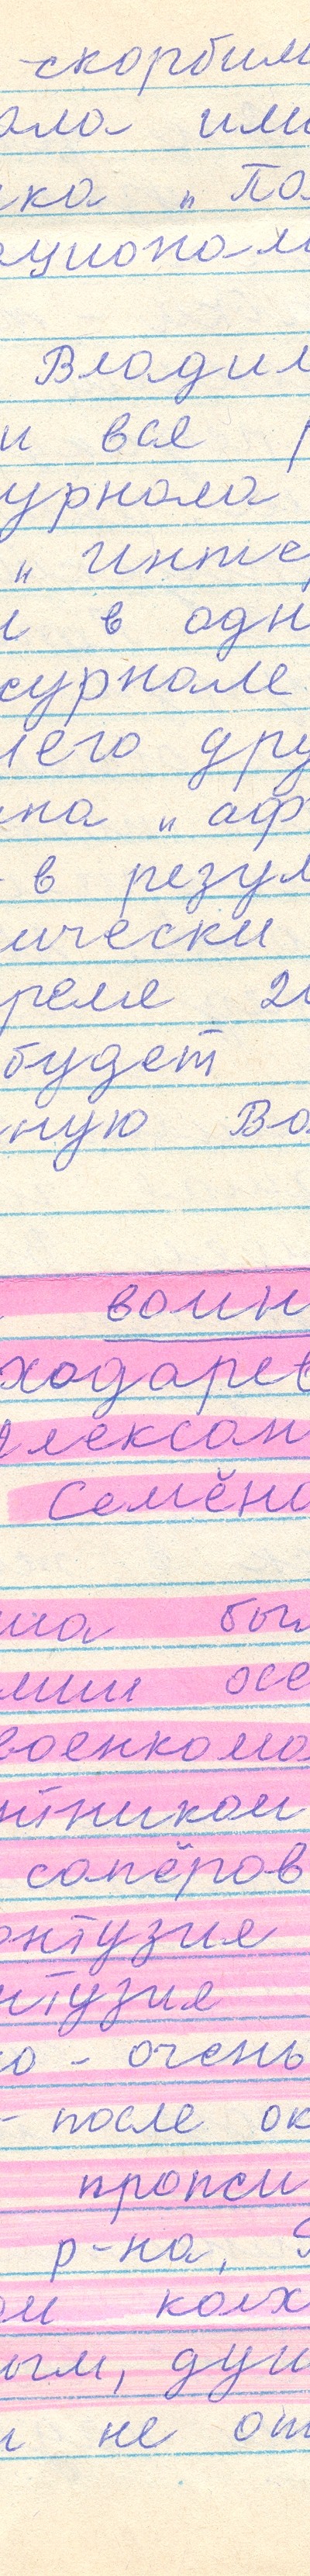 - скорбим
ала или
ка „По
ционал
Владим
и все р
урнала
„ инте
и в одн
журнале.
его дру
на „ аф
- в резул
ически
реля 2
будет
ную Во
воин
ходарев
Алексан
Семёно
ша был
мии осе
военкома
нтником
сапёров
онтузия
нтузия
ко - очень
- после ок
пропси
р-на, 
ом колх
ым, душ
и не от